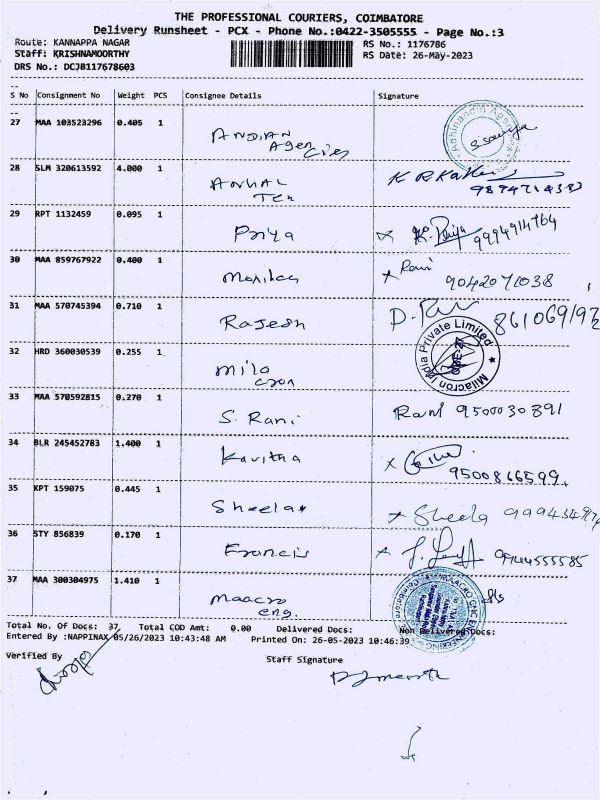 THE PROFESSIONAL COURIERS, COIMBATORE
Delivery Runsheet - PCX - Phone No.:0422-3505555 - Page No.:3
Route: KANNAPPA NAGAR RS No.: 1176786
Staff: KRISHNAMOORTHY RS Date: 26-May-2023
DRS No.: DCJB117678603
S No Consignment No Weight PCS Consignee Details Signature
27 MAA 103523296 0.405 1
ANDIAN
Agencies
28 SLM 320613592 4.000 1
Tex
29 RPT 1132459 0.095 1
Priya
30 MAA 859767922 0.400 1
Rani
9042071038
31 MAA 570745394 0.710 1
Rajesh
32 HRD 360030539 0.255 1
mila
cron
Milacron India Private Limited
33 MAA 570592815 0.270 1
S. Rani Rani 9500030891
34 BLR 245452783 1.400 1
Kavitha
9500866599
35 KPT 159075 0.445 1
Sheela Sheela
36 STY 856839 0.170 1
Francis
37 MAA 300304975 1.410 1
maacro
eng.
Total No. Of Docs: 37 Total COD Amt: 0.00 Delivered Docs: Non Delivered Docs:
Entered By :NAPPINAX 05/26/2023 10:43:48 AM Printed On: 26-05-2023 10:46:39
Verified By Staff Signature